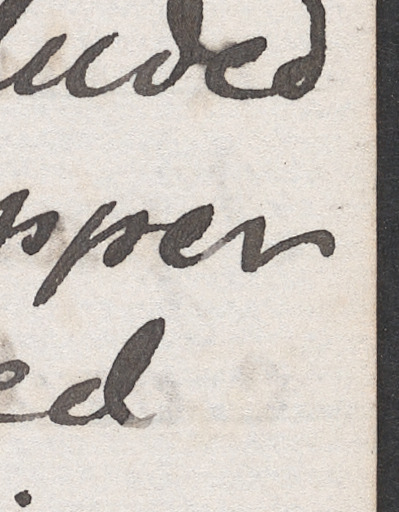 luded
pper
ed
.